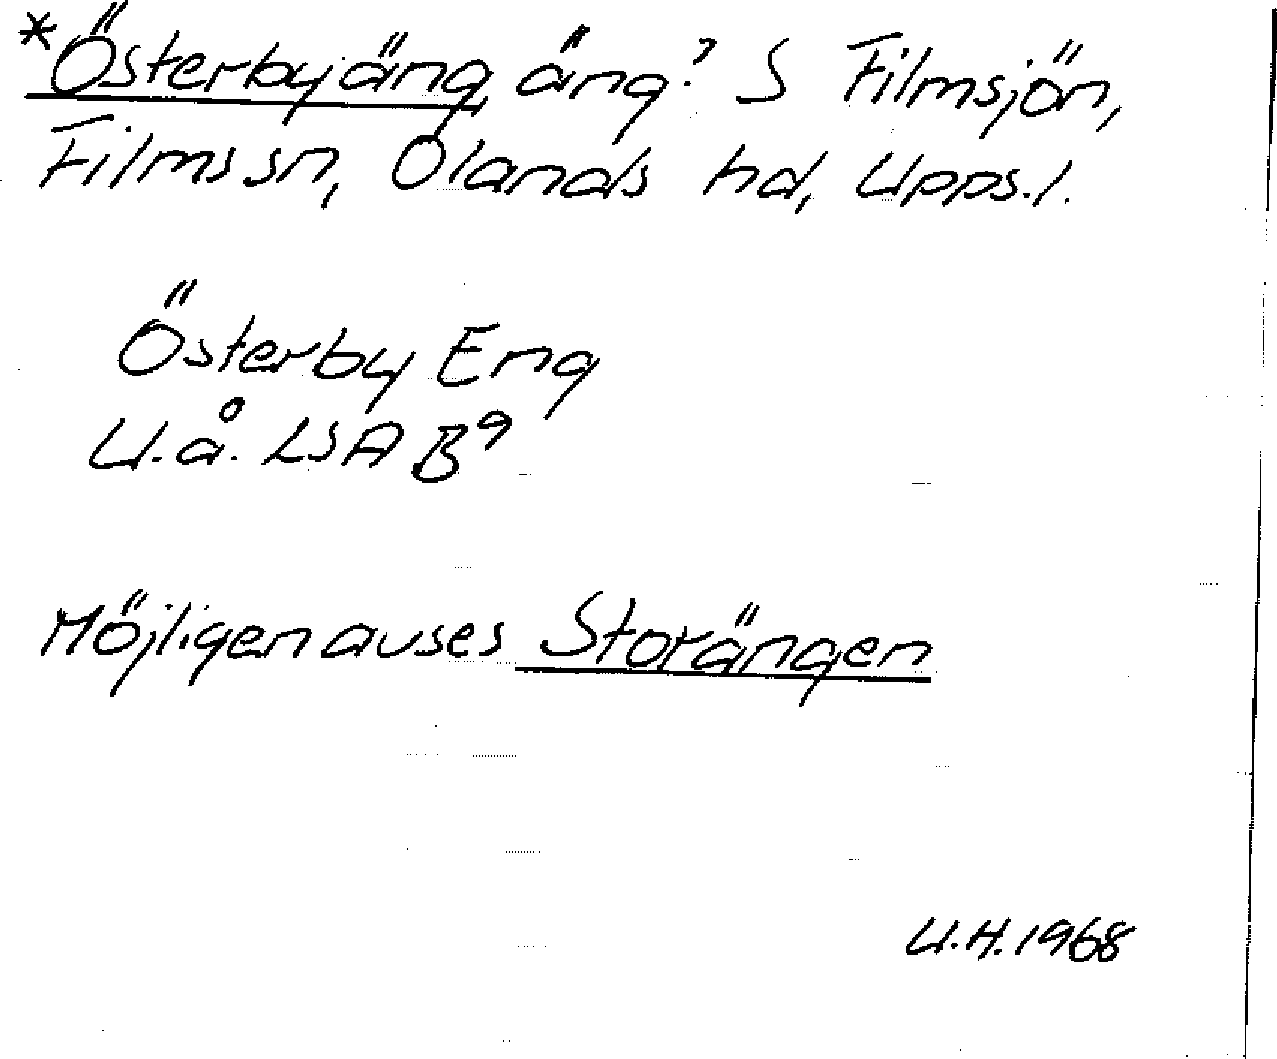 *Österbyäng, äng? S Filmsjön,
Films sn, Olands hd, Upps.l.
Österby Eng
U.å. LSA B9
Möjligen auses Storängen
U.H. 1968